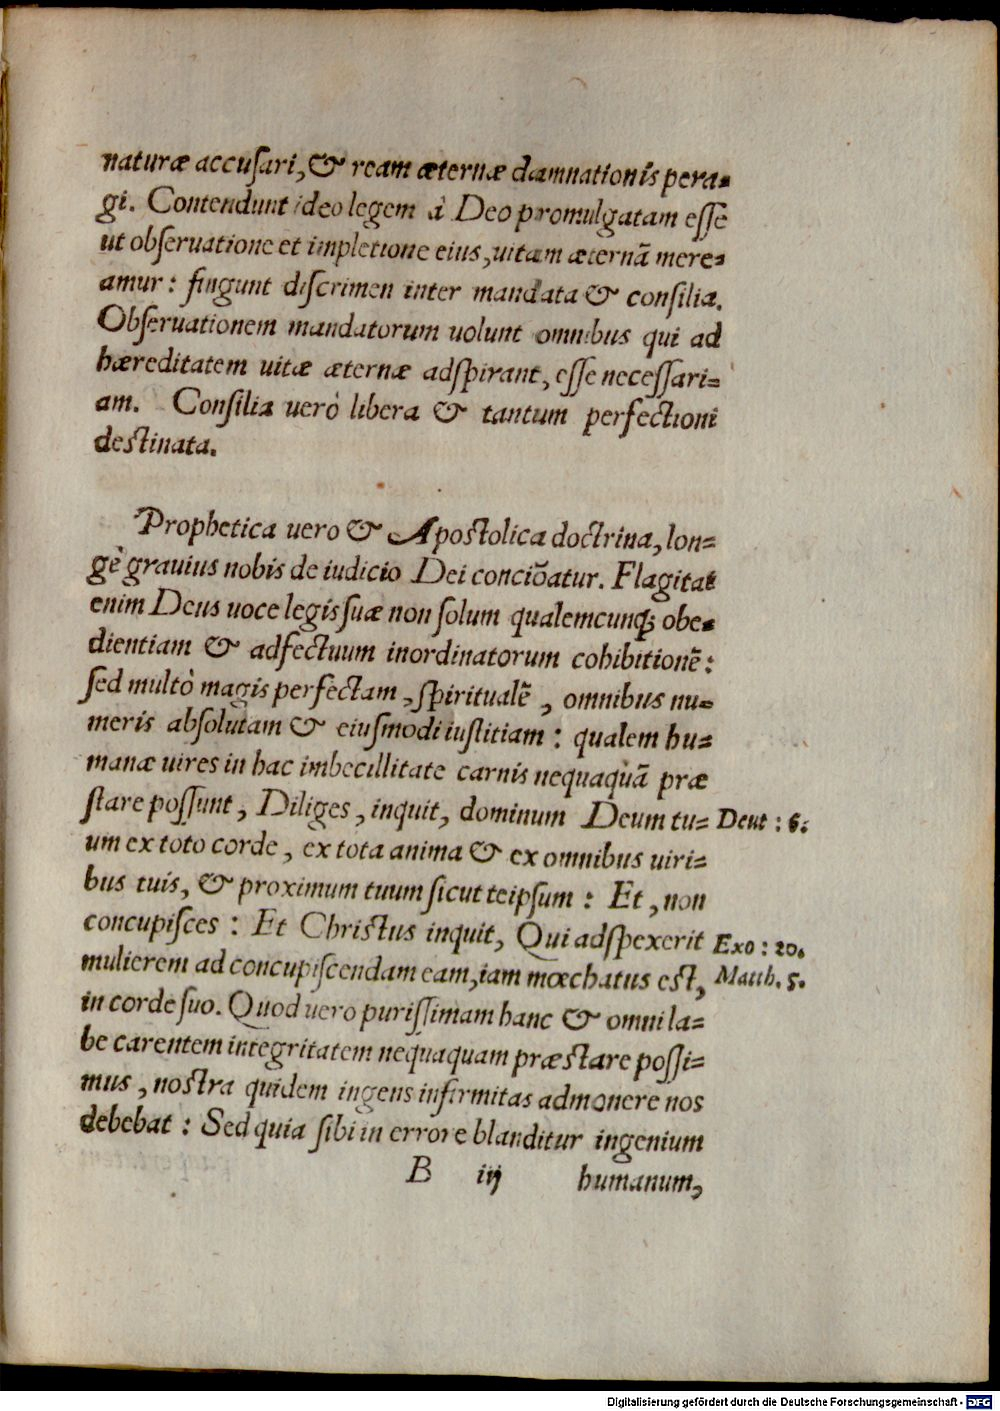 naturæ accuſari, & ream æternæ damnationis pera-
gi. Contendunt ideo legem à Deo promulgatam eſſe
ut obſeruatione et impletione eius, uitam æternã mere-
amur: fingunt diſcrimen inter mandata & conſilia.
Obſeruationem mandatorum uolunt omnibus qui ad
hæreditatem uitæ æternæ adſpirant, eſſe neceſſari=
am. Conſilia uerò libera & tantum perfectioni
deſtinata.
Prophetica uero & Apoſtolica doctrina, lon=
gè grauius nobis de iudicio Dei conciõatur. Flagitat
enim Deus uoce legis ſuæ non ſolum qualemcunqꝫ obe-
dientiam & adfectuum inordinatorum cohibitionẽ:
ſed multò magis perfectam, ſpiritualẽ, omnibus nu=
meris abſolutam & eiuſmodi iuſtitiam: qualem hu=
manæ uires in hac imbecillitate carnis nequaquã præ
ſtare poſſunt, Diliges, inquit, dominum Deum tu= Deut: 6.
um ex toto corde, ex tota anima & ex omnibus uiri=
bus tuis, & proximum tuum ſicut teipſum: Et, non
concupiſces: Et Chriſtus inquit, Qui adſpexerit Exo: 20.
mulierem ad concupiſcendam eam, iam mœchatus eſt, Matth. 5.
in corde ſuo. Quod uero puriſſimam hanc & omni la=
be carentem integritatem nequaquam præſtare poſſi=
mus, noſtra quidem ingens infirmitas admonere nos
debebat: Sed quia ſibi in errore blanditur ingenium
B iij humanum,
Digitalisierung gefördert durch die Deutsche Forschungsgemeinschaft - DFG